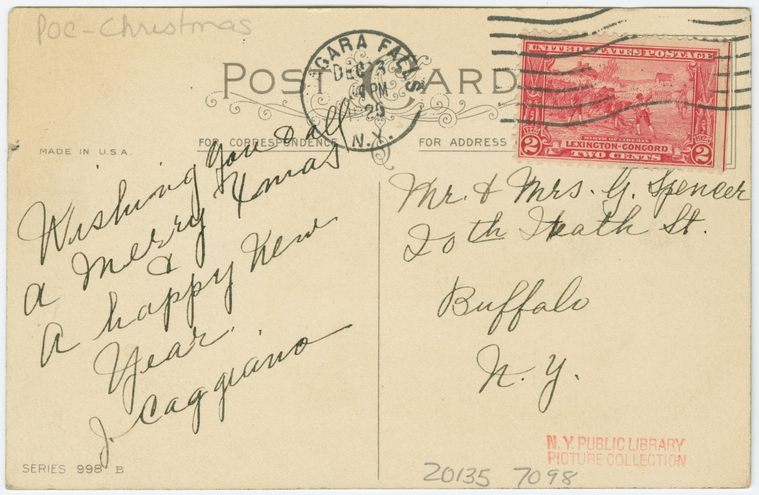 POC-Christmas
POST CARD
NIAGARA FALLS
DEC 3
PM
N.Y.
UNITED STATES POSTAGE
BIRTH OF LIBERTY
LEXINGTON-CONCORD
2 TWO CENTS 2
MADE IN U.S.A.
FOR CORRESPONDENCE
FOR ADDRESS
Wishing you & all
a Merry Xmas
&
a happy New
Year.
J. Caggiano
Mr. & Mrs. G. Spencer
20th Heath St.
Buffalo
N.Y.
N.Y. PUBLIC LIBRARY
PICTURE COLLECTION
SERIES 998 B
20135 7098